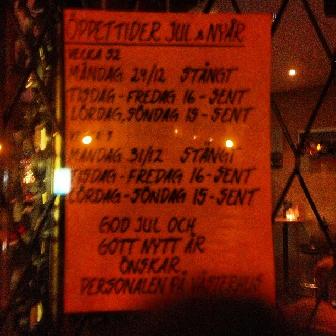 ÖPPETTIDER JUL & NYÅR
VECKA 52
MÅNDAG 24/12 STÄNGT
TISDAG - FREDAG 16 - SENT
LÖRDAG, SÖNDAG 15 - SENT
MÅNDAG 31/12 STÄNGT
TISDAG - FREDAG 16 - SENT
LÖRDAG - SÖNDAG 15 - SENT
GOD JUL OCH
GOTT NYTT ÅR
ÖNSKAR
PERSONALEN PÅ